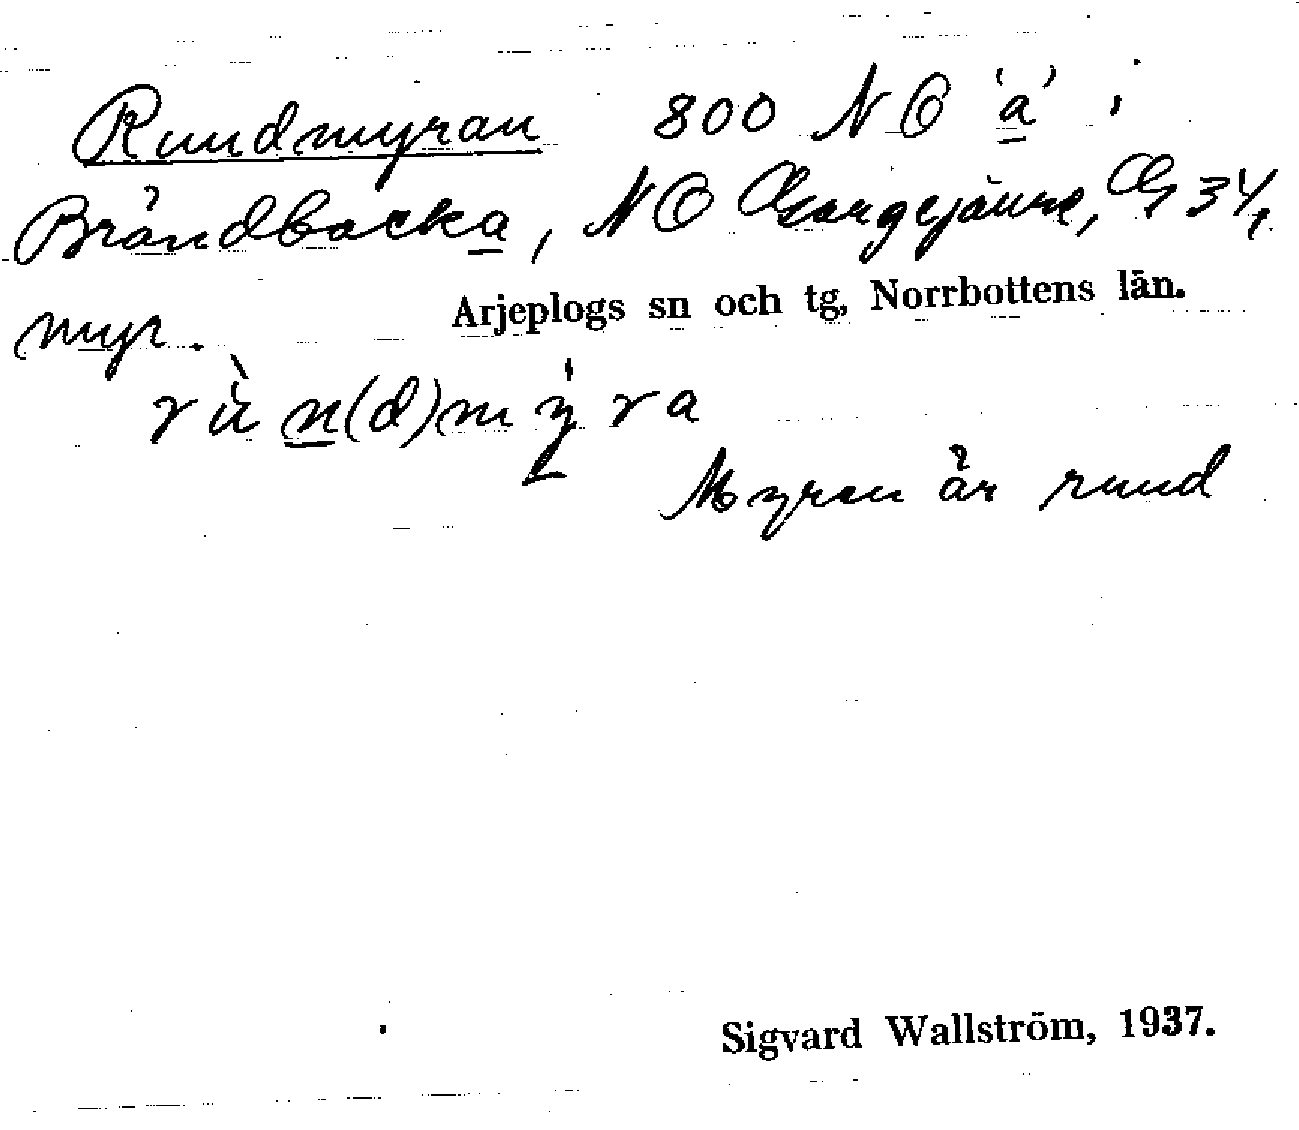 Rundmyran 800 NO 'a'
Brändbacka, NO G 34,
myr. Arjeplogs sn och tg, Norrbottens län.
rùn(d)mýra
Myran är rund
Sigvard Wallström, 1937.